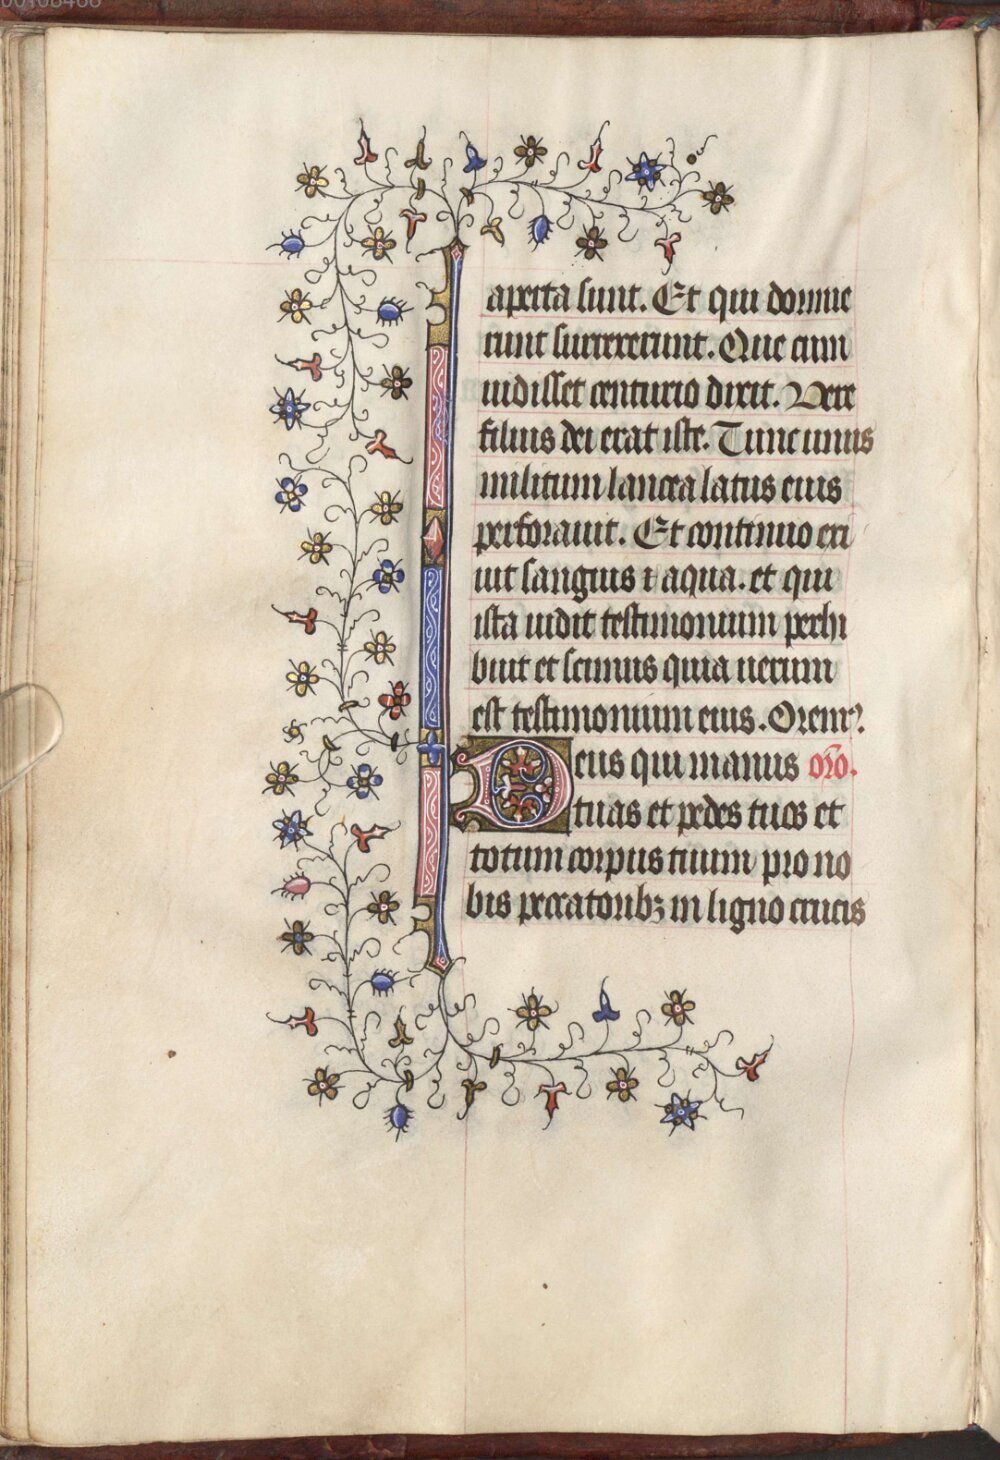 00108466
aperta sunt. Et qui dormie
runt surrexerunt. Que cum
uidisset centurio dixit. Vere
filius dei erat iste. Tunc unus
militum lancea latus eius
perforauit. Et continuo exi
uit sanguis ⁊ aqua. et qui
ista uidit testimonium perhi
buit et scimus quia uerum
est testimonium eius. Oremꝰ.
Deus qui manus or̄o.
tuas et pedes tuos et
totum corpus tuum pro no
bis peccatoribꝫ in ligno crucis